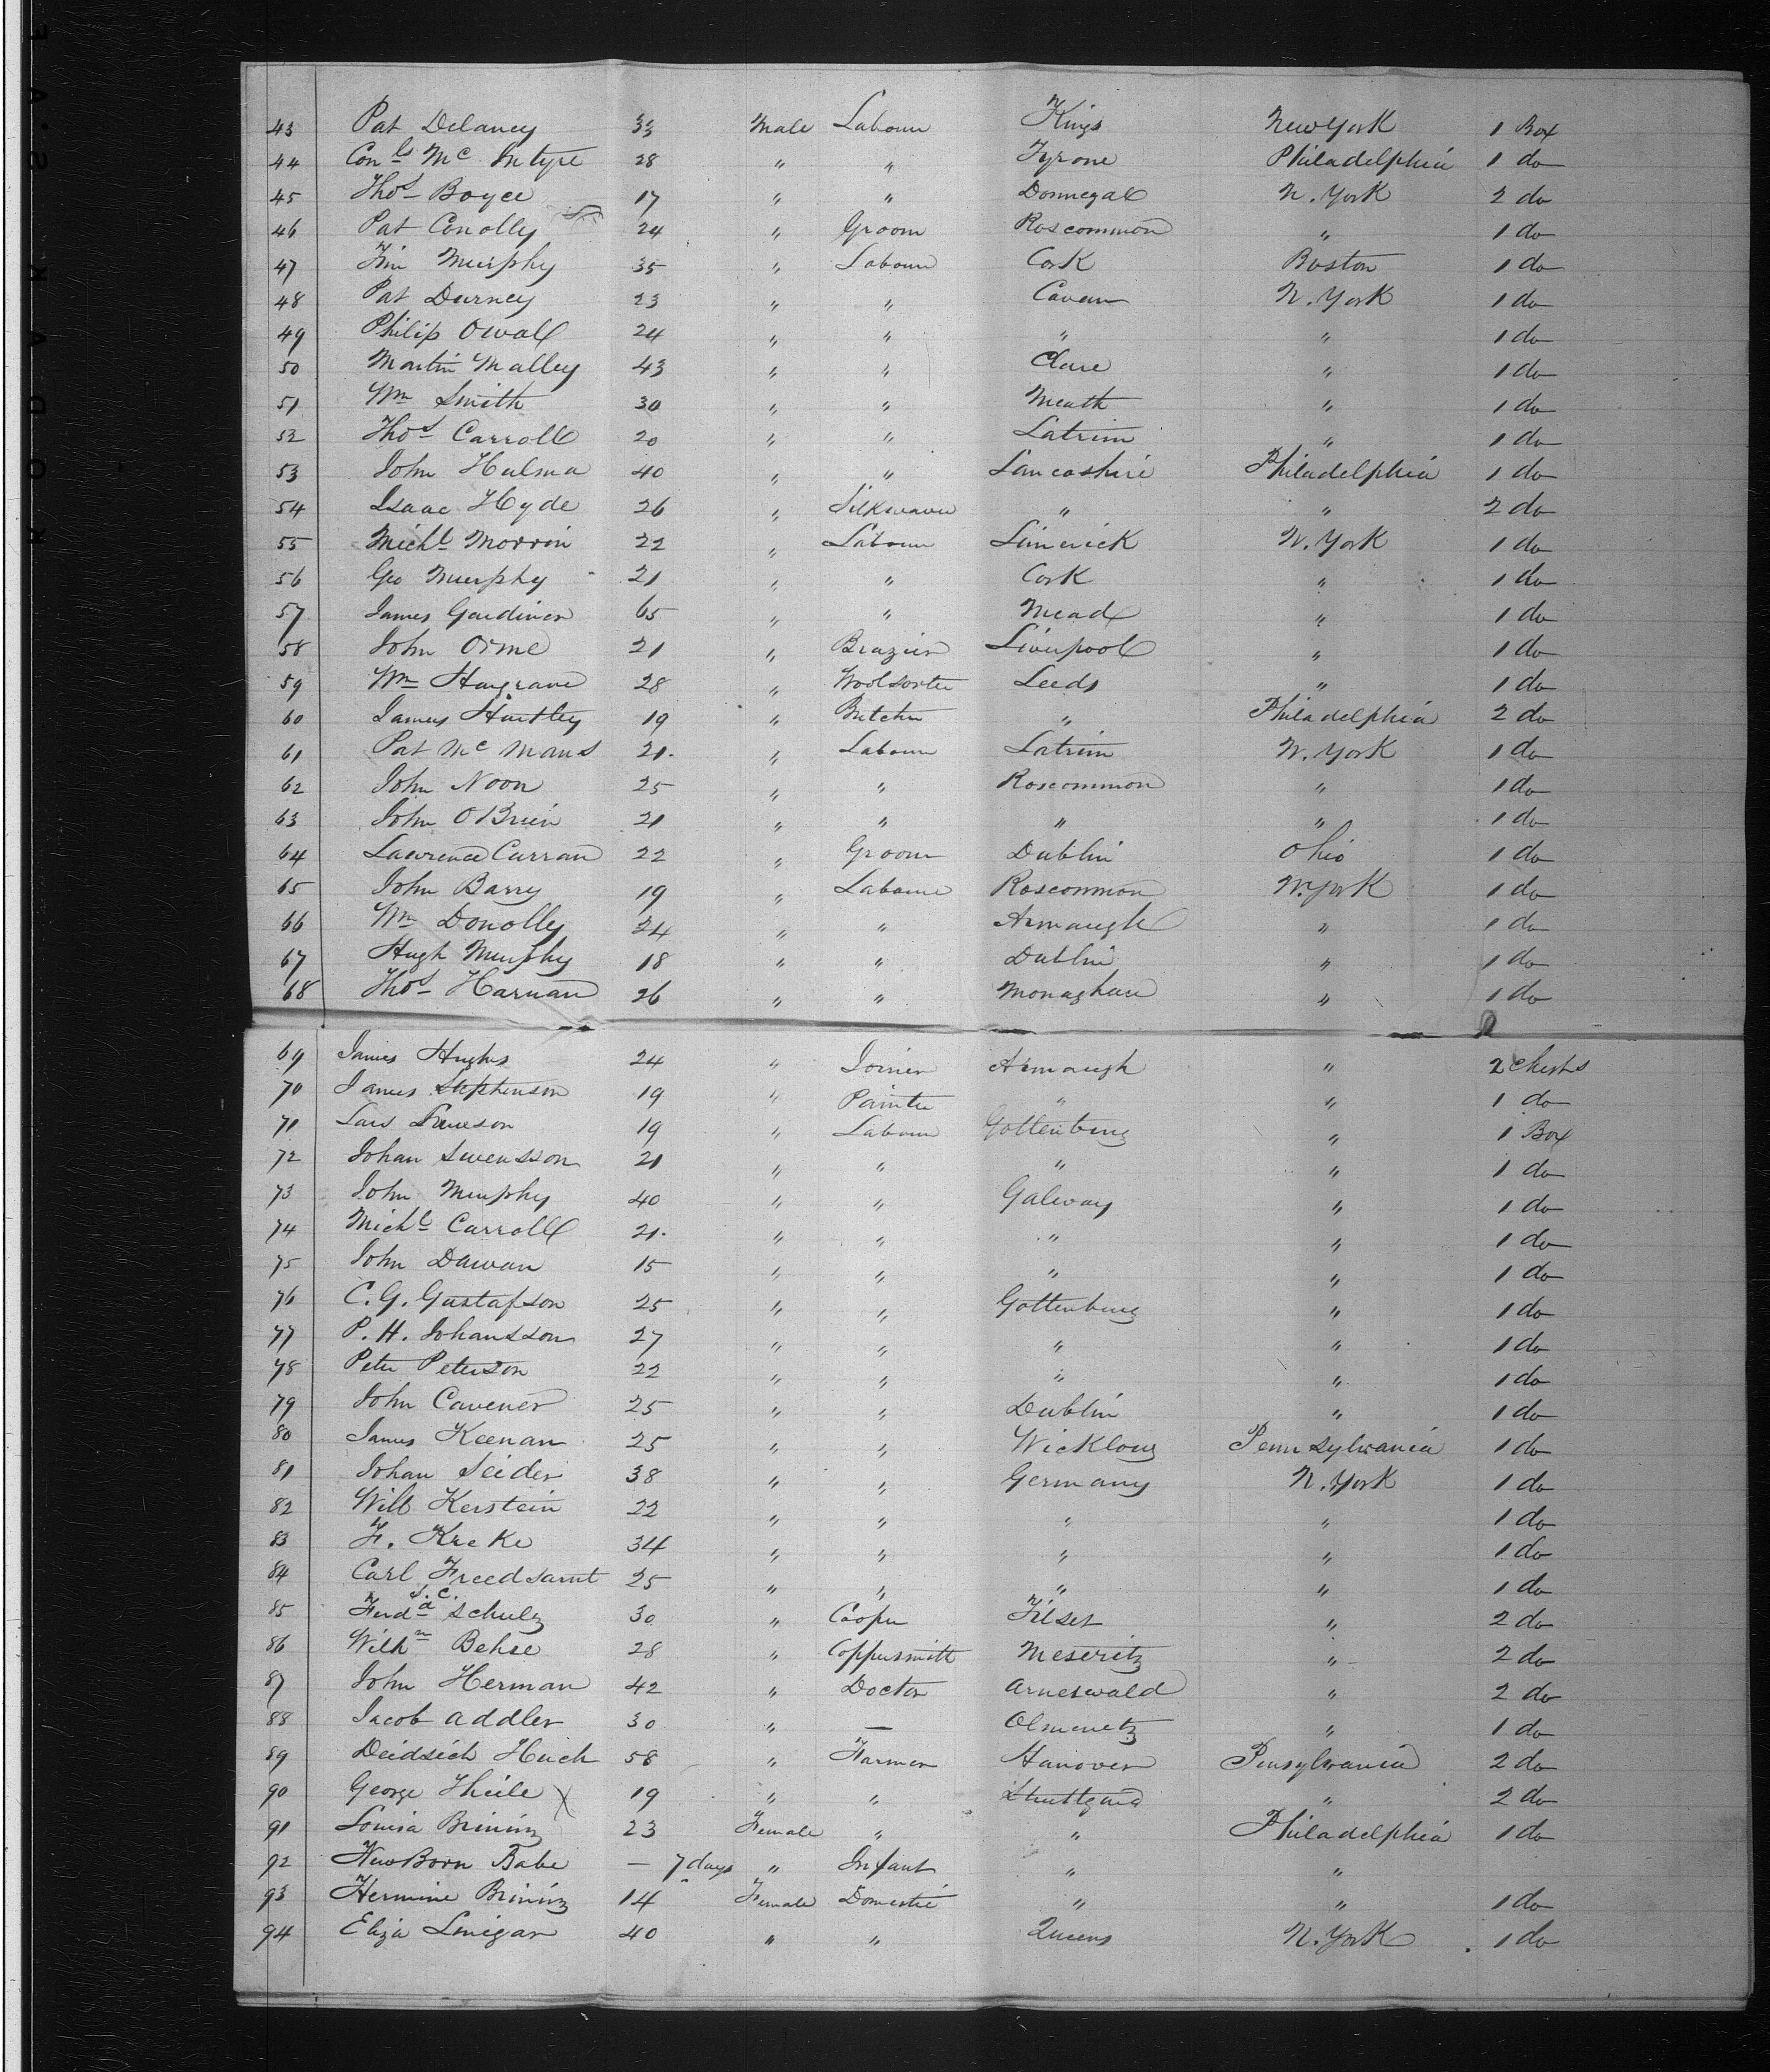 43 Pat Delaney 33 Male Labour Kings New York 1 Box
44 Conls Mc Intyre 28 " " Tyrone Philadelphia 1 do
45 Thos Boyce 17 " " Donnegal N. York 2 do
46 Pat Conolly 24 " Groom Roscommon " 1 do
47 Tim Murphy 35 " Labour Cork Boston 1 do
48 Pat Durney 23 " " Cavan N. York 1 do
49 Philip Owall 24 " " " " 1 do
50 Martin Malley 43 " " Clare " 1 do
51 Wm Smith 30 " " Meath " 1 do
52 Thos Carroll 20 " " Latrim " 1 do
53 John Hulma 40 " " Lancashire Philadelphia 1 do
54 Isaac Hyde 26 " Silkwaver " " 2 do
55 Michl Morrin 22 " Labour Limerick N. York 1 do
56 Geo Murphy 21 " " Cork " 1 do
57 James Gardiner 65 " " Mead " 1 do
58 John Orme 21 " Brazier Liverpool " 1 do
59 Wm Hargrave 28 " Woolsorter Leeds " 1 do
60 James Hartley 19 " Butcher " Philadelphia 2 do
61 Pat Mc Manus 21. " Labour Latrim N. York 1 do
62 John Noon 25 " " Roscommon " 1 do
63 John O Brien 21 " " " " 1 do
64 Lawrence Curran 22 " Groom Dublin Ohio 1 do
65 John Barry 19 " Labour Roscommon N. York 1 do
66 Wm Donolly 24 " " Armaugh " 1 do
67 Hugh Murphy 18 " " Dublin " 1 do
68 Thos Harnan 26 " " Monaghan " 1 do
69 James Hughs 24 " Joiner Armaugh " 2 Chests
70 James Stephenson 19 " Painter " " 1 do
71 Lars 19 " Labour Gottenburg " 1 Box
72 Johan Swensson 21 " " " " 1 do
73 John Murphy 40 " " Galway " 1 do
74 Michl Carroll 21. " " " " 1 do
75 John Dawan 15 " " " " 1 do
76 C. G. Gustafson 25 " " Gottenburg " 1 do
77 P. H. Johansson 27 " " " " 1 do
78 Peter Peterson 22 " " " " 1 do
79 John Cavener 25 " " Dublin " 1 do
80 James Keenan 25 " " Wicklow Pennsylvania 1 do
81 Johan Seider 38 " " Germany N. York 1 do
82 Will Kerstein 22 " " " " 1 do
83 F. Kreke 34 " " " " 1 do
84 Carl Freedsamt 25 " " " " 1 do
S. C.
85 Ferda Schulz 30 " Cooper Tilset " 2 do
86 Wilhm Behse 28 " Coppersmith Meseritz " 2 do
87 John Herman 42 " Doctor Arneswald " 2 do
88 Jacob Addler 30 " — Olmenetz " 1 do
89 Deidsich Huch 58 " Farmer Hanover Pensylvania 2 do
90 George Theile 19 " " Stuttgard " 2 do
91 Louisa Brining 23 Female " " Philadelphia 1 do
92 New Born Babe — 7 days " Infant " "
93 Hermine Brining 14 Female Domestic " " 1 do
94 Eliza Linigar 40 " " Queens N. York 1 do